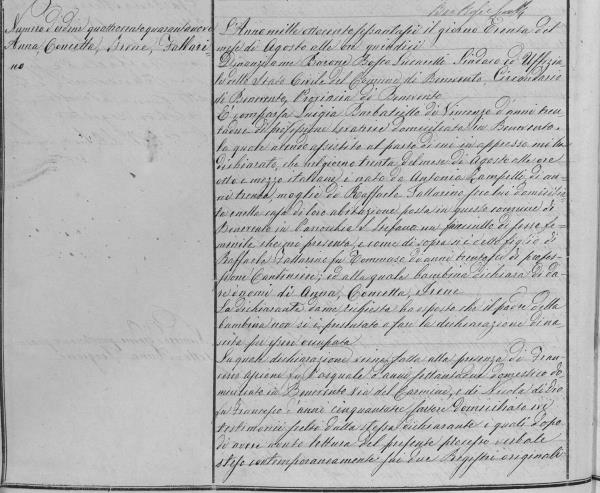 Numero d'ordine quattrocento quarantanove
Anna, Concetta, Irene, Tallari-
no
L'Anno mille ottocento sessantasei il giorno trenta del
mese di Agosto alle ore quindici
Dinanzi a me Barone Bosco Lucarelli Sindaco ed Uffizia
le dello Stato Civile del Comune di Benevento, Circondario
di Benevento, Provincia di Benevento.
È comparsa Luigia Barbatietto di Vincenzo d'anni tren
tanove di professione levatrice domiciliata in Benevento
la quale avendo assistito al parto di cui in appresso mi ha
dichiarato, che nel giorno trenta del mese di Agosto alle ore
otto e mezzo italiane è nato da Antonia Zampetti di an
ni trenta, moglie di Raffaele Tallarino seco lui domicilia
ta nella casa di loro abitazione posta in questo comune di
Benevento in Parrocchia S. Stefano un fanciullo di sesso fe-
minile che mi presenta, e come di sopra si è detto figlio di
Raffaele Tallarino fu Tommaso di anni trentasei di profes-
sione Cantiniere; ed alla quale bambina dichiara di da-
re i nomi di Anna, Concetta, Irene
La dichiarante da me richiesta ha risposto che il padre della
bambina non si è prestato a fare la dichiarazione di na
scita per essere occupato
La quale dichiarazione viene fatta alla presenza di Fran-
cesco fu Pasquale d'anni settantadue domestico do
miciliato in Benevento Via del Carmine, e di Nicola di
fu Francesco d'anni cinquantasei sartore domiciliato ivi
testimonii scelti dalla stessa dichiarante i quali dopo
di avere avuto lettura del presente processo verbale
steso contemporaneamente sui due Registri originali